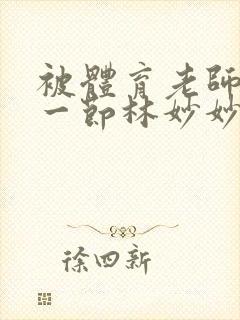 被體育老師
一節林妙妙
徐四新